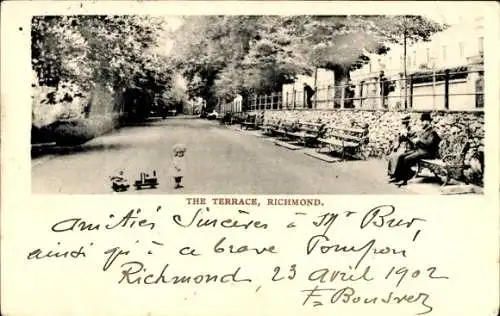 THE TERRACE, RICHMOND.
Amitiés Sincères à Mr Bur,
ainsi qu'à ce brave Pompon,
Richmond 23 April 1902
F. Bonsver